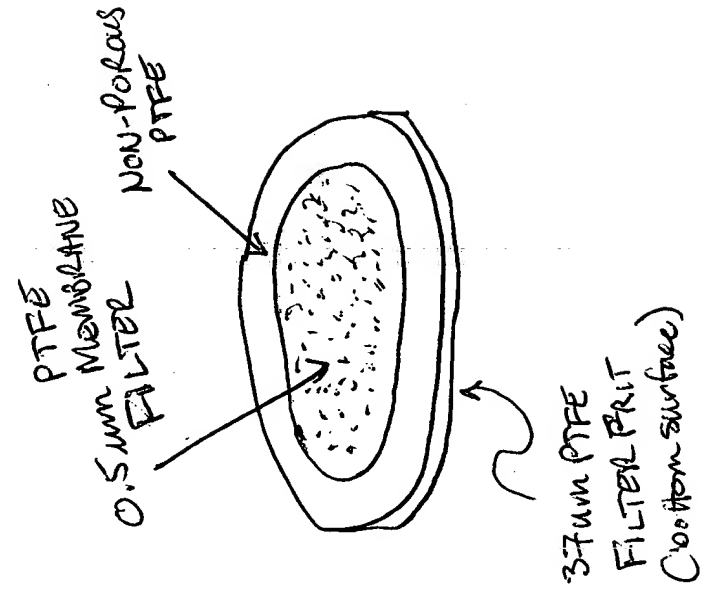 PTFE
MEMBRANE
0.5 um FILTER
NON-POROUS
PTFE
37um PTFE
FILTER FRIT
(bottom surface)